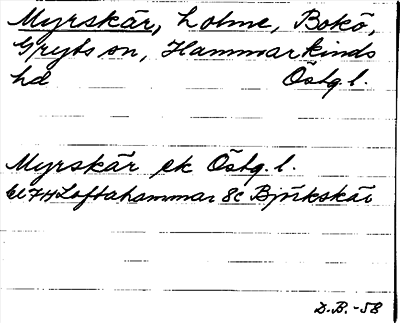 Myrskär, holme, Bokö,
Gryts sn, Hammarkinds
hd Östg.l.
Myrskär ek Östg.l.
bl 74 Loftahammar 8c Björkskär
D.B.-58